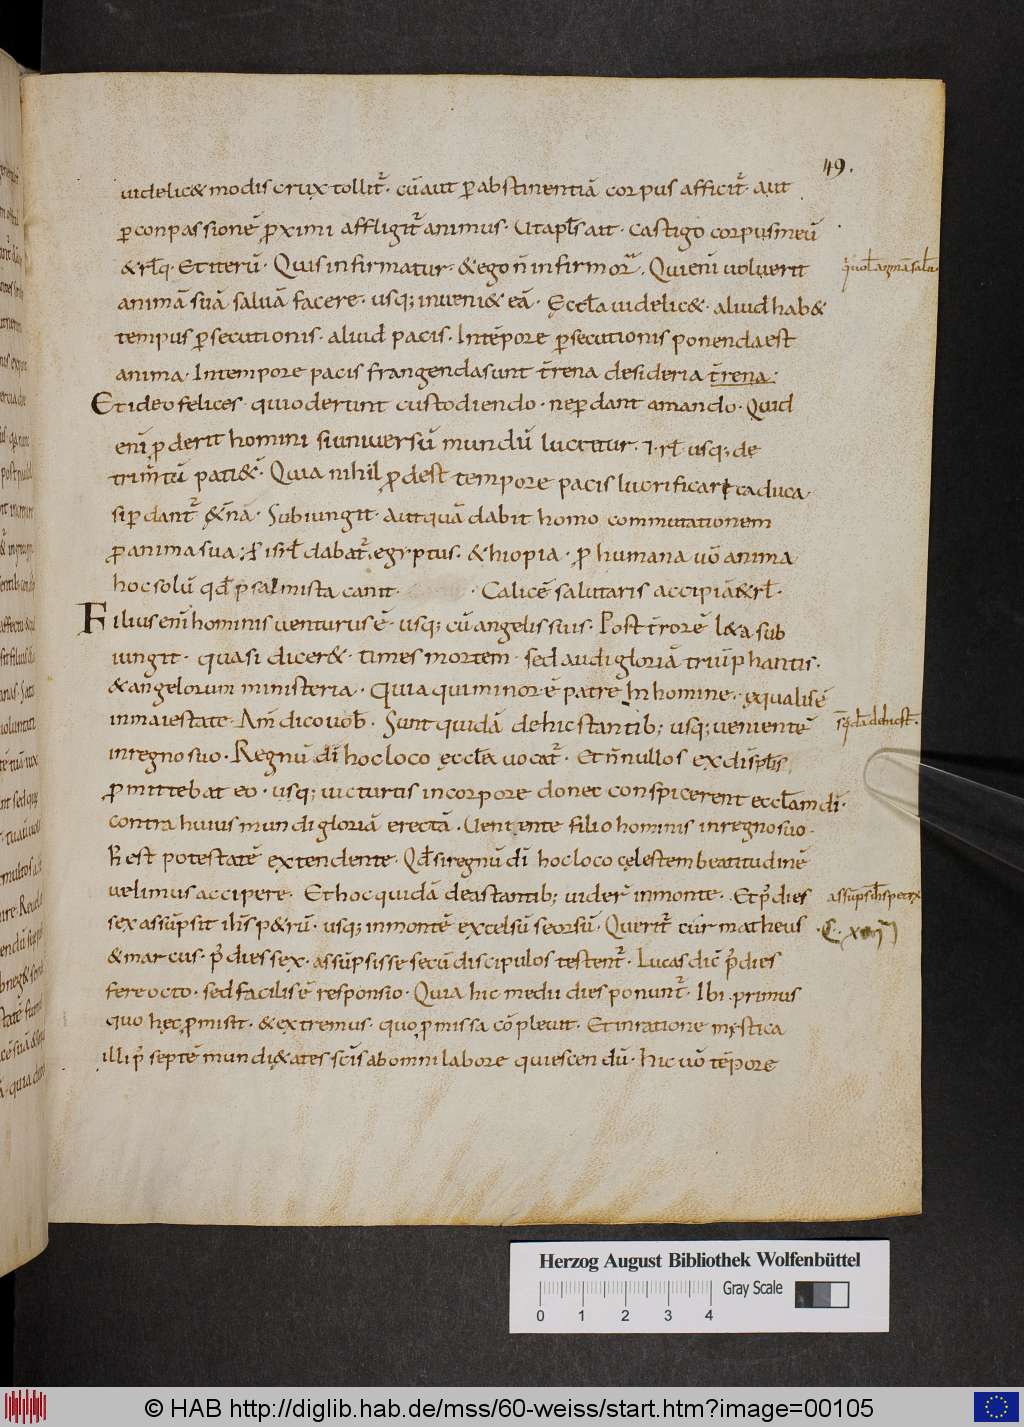 49.
uidelic& modis crux tollit᷑· cū aut ꝑ abstinentiā corpus afficit᷑· aut
ꝑ conpassionē ꝓximi affligit᷑ animus· Ut apl̄s ait· Castigo corpus meū
& rl̄q· Et iterū· Quis infirmatur· & ego n̄ infirmor᷑· Qui eni uoluerit
animā suā saluā facere· usq; inueni& eā· Eccl̄a uidelic&· aliud hab&
tempus ꝑsecutionis· aliud pacis· In tēpore ꝑsecutionis ponenda est
anima· In tempore pacis frangenda sunt t̄rena desideria t̄rena·
Et ideo felices· qui oderunt custodiendo· ne ꝑdant amando· Quid
enī ꝓderit homini si uniuersū mundū lucr&ur· & rl̄ usq; de
trim̄tū pati&· Quia nihil ꝓdest tempore pacis lucrificari caduca·
si ꝑdant᷑ &̨na· Subiungit· aut quā dabit homo commutationem
ꝓ anima sua; ꝓ isrl̄ dabat᷑ egyptus· & hiopia· ꝓ humana uō anima
hoc solū qd̄ psalmista canit· Calicē salutaris accipiā & rl̄·
Filius enī hominis uenturus ē· usq; cū angelis suis· Post t̄rorē l&a sub
iungit· quasi dicer&· times mortem· sed audi gloriā triūphantis·
& angelorum ministeria· Quia qui minor ē patre in homine· ęqualis ē
in maiestate· Am̄ dico uob̄· Sunt quidā de hic stantib; usq; uenientē
in regno suo· Regnū dī hoc loco ęccl̄a uocat᷑· Et n̄nullos ex discipl̄is
ꝓmittebat eo· usq; uicturus in corpore donec conspicerent eccl̄am dī·
contra huius mundi gloriā erectā· Ueniente filio hominis in regno suo·
.i. est potestatē extendente· Qd̄ si regnū dī hoc loco cęlestem beatitudinē
uelimus accipere· Et hoc quidā de astantib; uider̄ in monte· Et p̄ dies
sex assūpsit ih̄s p&rū· usq; in montē excelsū seorsū· Querit᷑ cur matheus
& marcus· p̄ dies sex· assūpsisse secū discipulos testent᷑· Lucas dic̄ p̄ dies
fere octo· sed facilis ē responsio· Quia hic medii dies ponunt᷑· Ibi primus
quo hęc ꝓmisit· & extremus· quo ꝓmissa cōpleuit· Et in ratione mystica
illi p̄ septē mundi &ates sc̄is ab omni labore quiescendū· hic uō tēpore
© HAB http://diglib.hab.de/mss/60-weiss/start.htm?image=00105
Herzog August Bibliothek Wolfenbüttel
Gray Scale
0 1 2 3 4